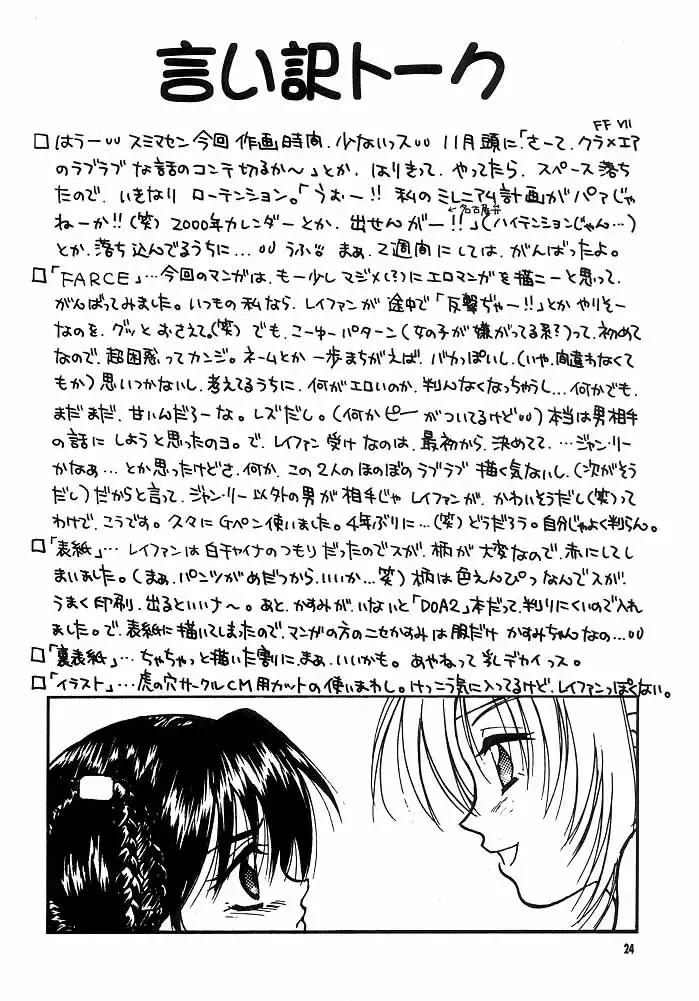 言い訳トーク
FF VII
□はうーυυ スミマセン今回 作画時間、少ないっスυυ 11月頭に「さーて、クラ×エア
のラブラブな話のコンテ切るか〜」とか、はりきって、やってたら、スペース落ち
たので、いきなり ローテンション。「うおー!! 私のミレニアム計画がパァじゃ
←名古屋弁
ねーか!!(笑)2000年カレンダーとか、出せんがー!!」(ハイテンションじゃん…)
とか、落ち込んでるうちに…υυ うふ まぁ、2週間にしては、がんばったよ。
□「FARCE」…今回のマンガは、もー少しマジメ(?)にエロマンガを描こーと思って、
がんばってみました。いつもの私なら、レイファンが途中で「反撃ぢゃー!!」とかやりそー
なのを、グッとおさえて。(笑)でも、こーゆーパターン(女の子が嫌がってる系?)って、初めて
なので、超困惑ってカンジ。ネームとか一歩まちがえば、バカっぽいし、(いや、間違わなくて
もか)思いつかないし、考えてるうちに、何がエロいのか、判んなくなっちゃうし…何かでも、
まだまだ、甘いんだろーな。レズだし。(何かピーがついてるけどυυ)本当は男相手
の話にしようと思ったのヨ。で、レイファン受けなのは、最初から、決めてて、…ジャン・リー
かなぁ…とか思ったけどさ、何か、この2人のほのぼのラブラブ描く気ないし、(次がそう
だし)だからと言って、ジャン・リー以外の男が相手じゃレイファンが、かわいそうだし(笑)って
わけで、こうです。久々にGペン使いました。4年ぶりに…(笑)どうだろう。自分じゃよく判らん。
□「表紙」…レイファンは白チャイナのつもりだったのでスが、柄が大変なので、赤にしてし
まいました。(まぁ、パンツがめだつから、いいか…笑)柄は色えんぴつなんでスが、
うまく印刷、出るといいナ〜。あと、かすみが、いないと「DOA2」本だって、判りにくいので入れ
ました。で、表紙に描いてしまったので、マンガの方のニセかすみは服だけ かすみちゃんなの…υυ
□「裏表紙」…ちゃちゃっと描いた割に、まぁ、いいかも。あやねって乳デカイっス。
□「イラスト」…虎の穴サークルCM用カットの使いまわし。けっこう気に入ってるけど、レイファンっぽくない。
24